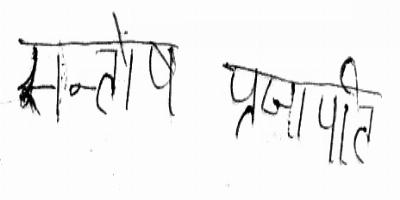 सन्तोष प्रजापति